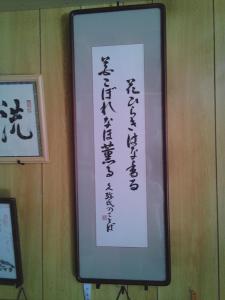 花ひらきはな香る
花こぼれなほ薫る
流